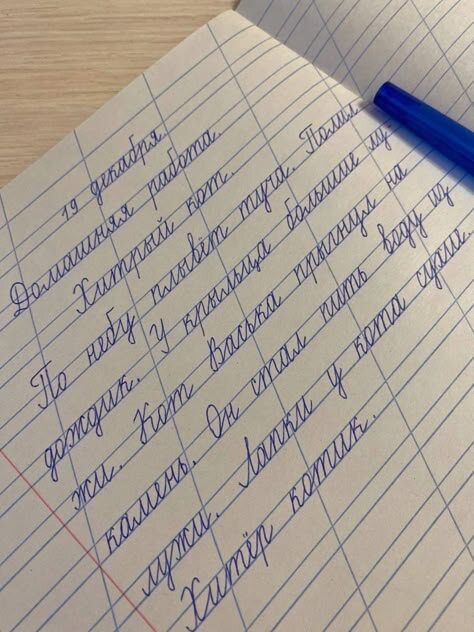 19 декабря.
Домашняя работа.
Хитрый кот.
По небу плывёт туча. Полил
дождик. У крыльца большие лу-
жи. Кот Васька прыгнул на
камень. Он стал пить воду из
лужи. Лапки у кота сухие.
Хитёр котик.